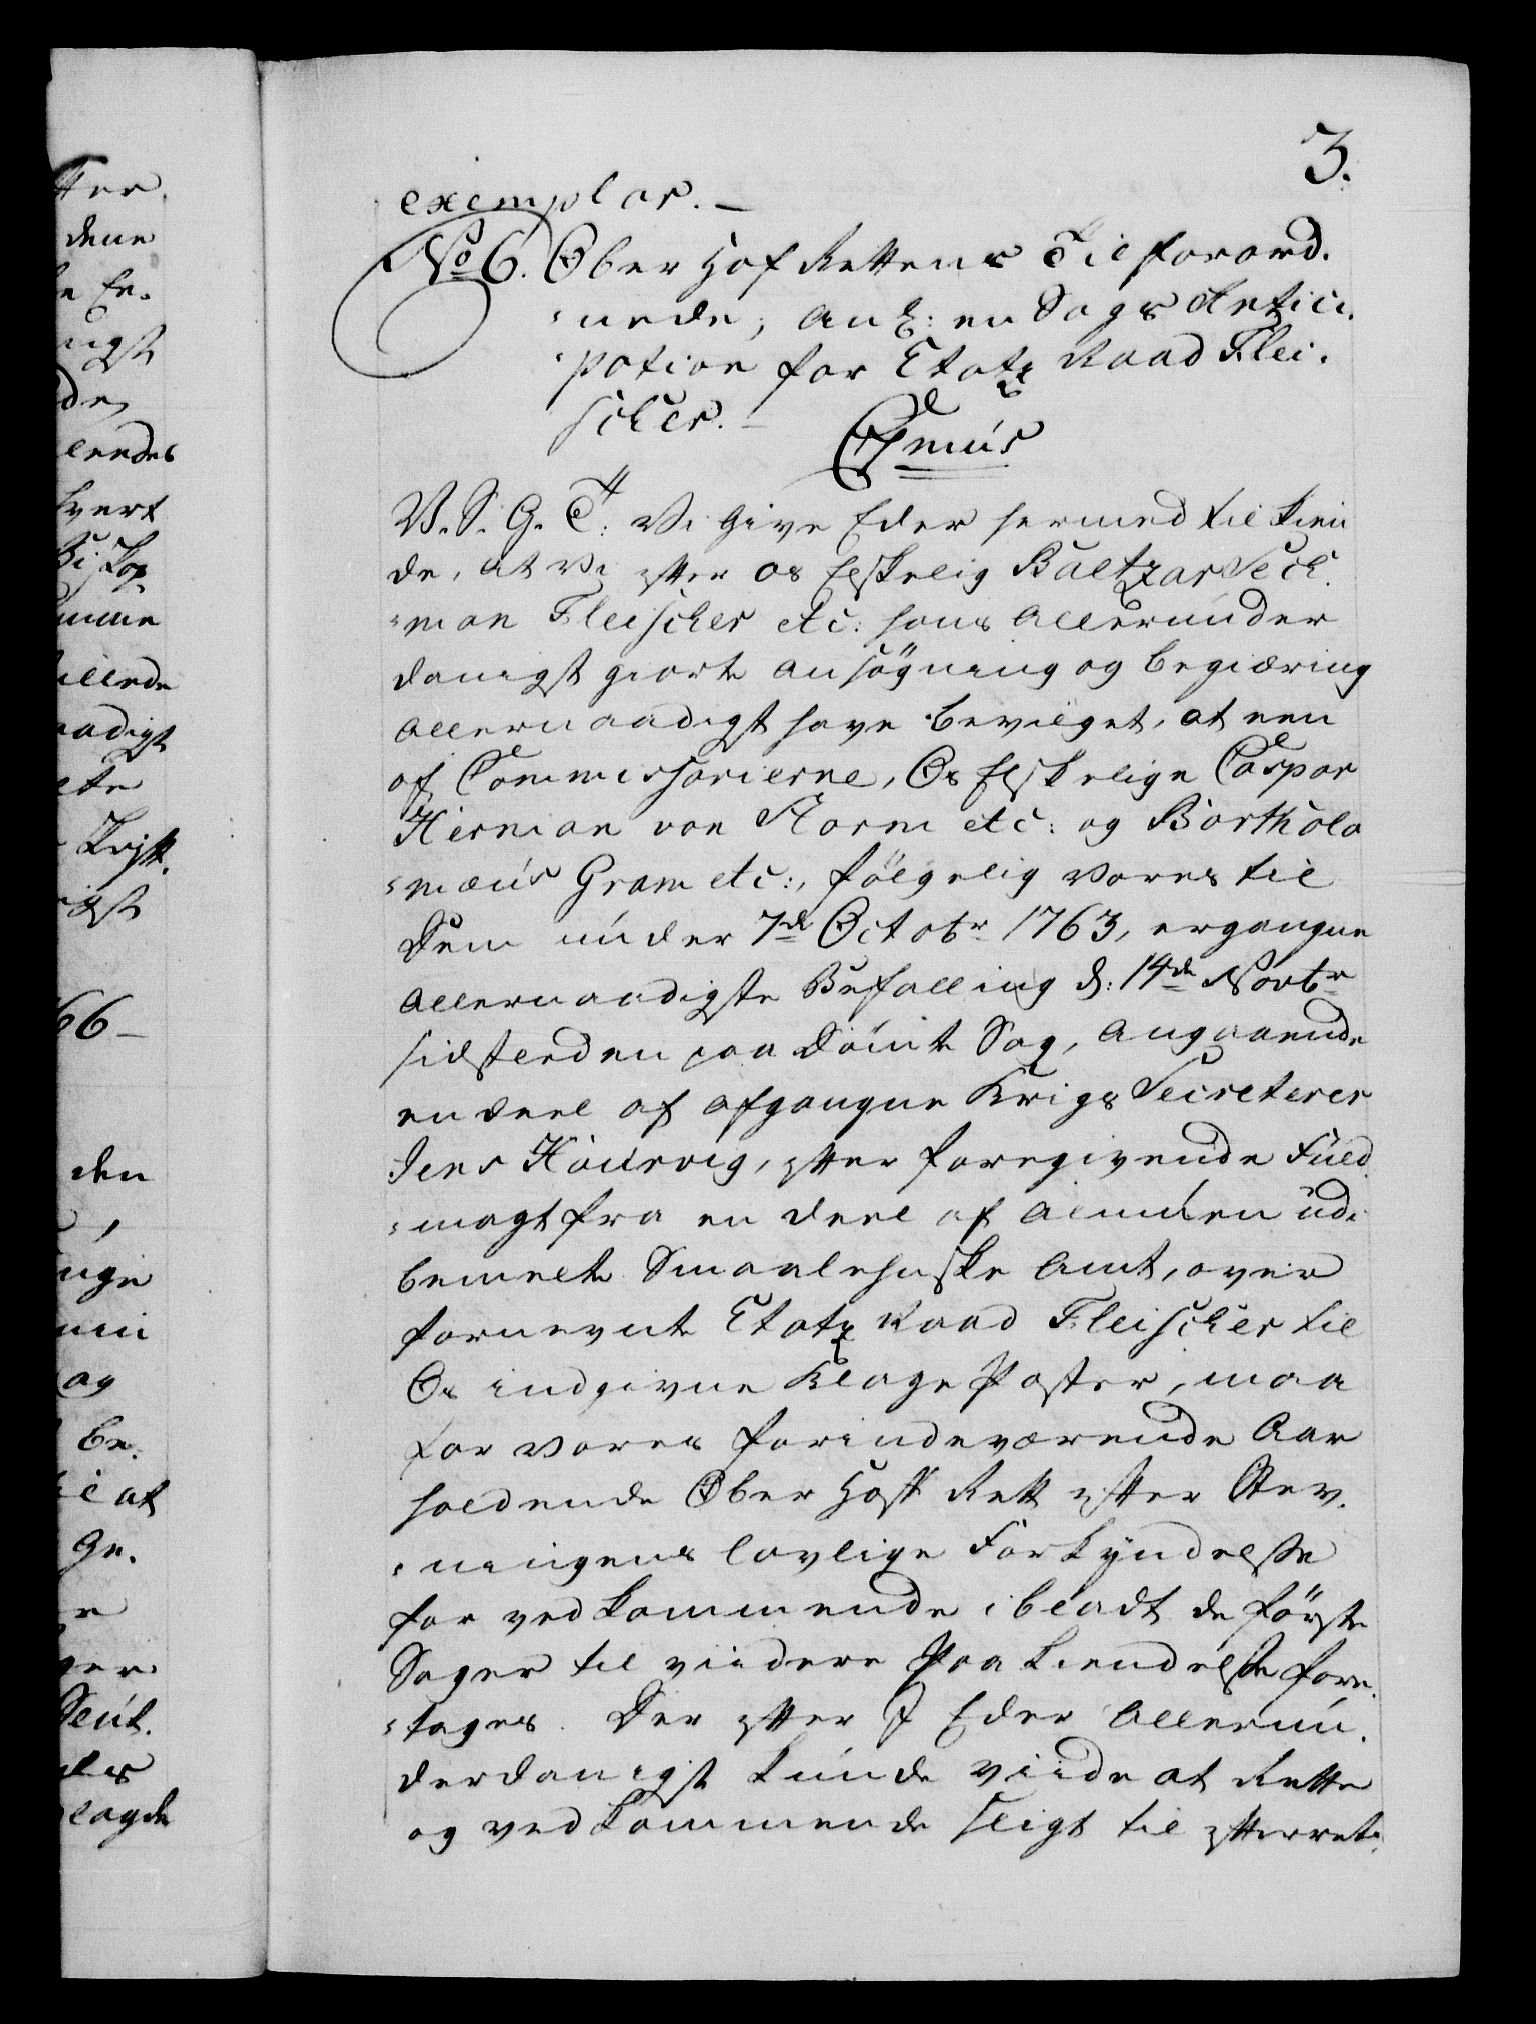 3.
exemplar. –
No 6. Ober Hof Rettens Tilforord-
nede, ang: en Sags Antici-
pation for Etatz Raad Flei-
scher. –
Cfmus
V. S. G. T: Vi give Eder hermed til kien
de, at Vi efter os Elskelig Baltzar Sech-
man Fleischer etc: hans allerunder
danigst giorte ansøgning og begiæring
allernaadigst have bevilget, at een
af Commissarierne, Os Elskelige Caspar
Herman von Storm etc: og Bartholo
mæus Gram etc:, følgelig vores til
Dem under 7de Octobr 1763, ergangne
allernaadigste Befalling d: 14de Novbr
sidstleden paa dømte Sag, angaaende
en deel af afgangne Krigs Secreterer
Jens Hourvig, efter foregivende Fuld
magt fra en deel af Almuen udi
bemelte Smaalehnske Amt, over
fornevnte Etatz Raad Fleischer til
Os indgivne Klage Poster, maa
for vores forindeværende Aar
holdende Ober Hoff Rett efter Stev-
ningens lovlige Forkyndelse
for vedkommende iblandt de første
Sager til viidere Paakiendelse fore-
tages. Der efter I Eder allerun-
derdanigst kunde viide at Rette
og vedkommende sligt til efterret-